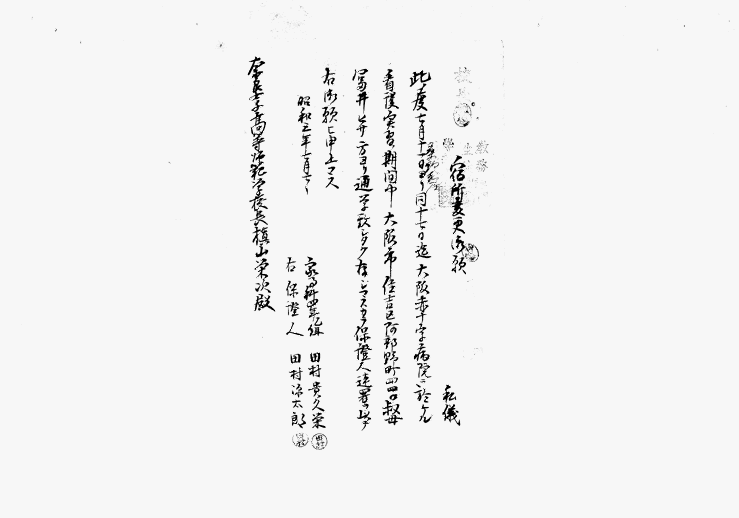 宿所変更御願
私儀
此ノ度七月十一日ヨリ同十七日迄大阪赤十字病院ニ於ケル
看護実習期間中大阪市住吉区阿部野町四四〇叔母
方ヨリ通学致シタク存ジマスカラ保證人連署ヲ以テ
右御願ヒ申上マス
昭和三年七月
家 四年
田村貴久栄
右保證人
田村涼太郎
奈良女子高等師範学校長槇山栄次殿
教務